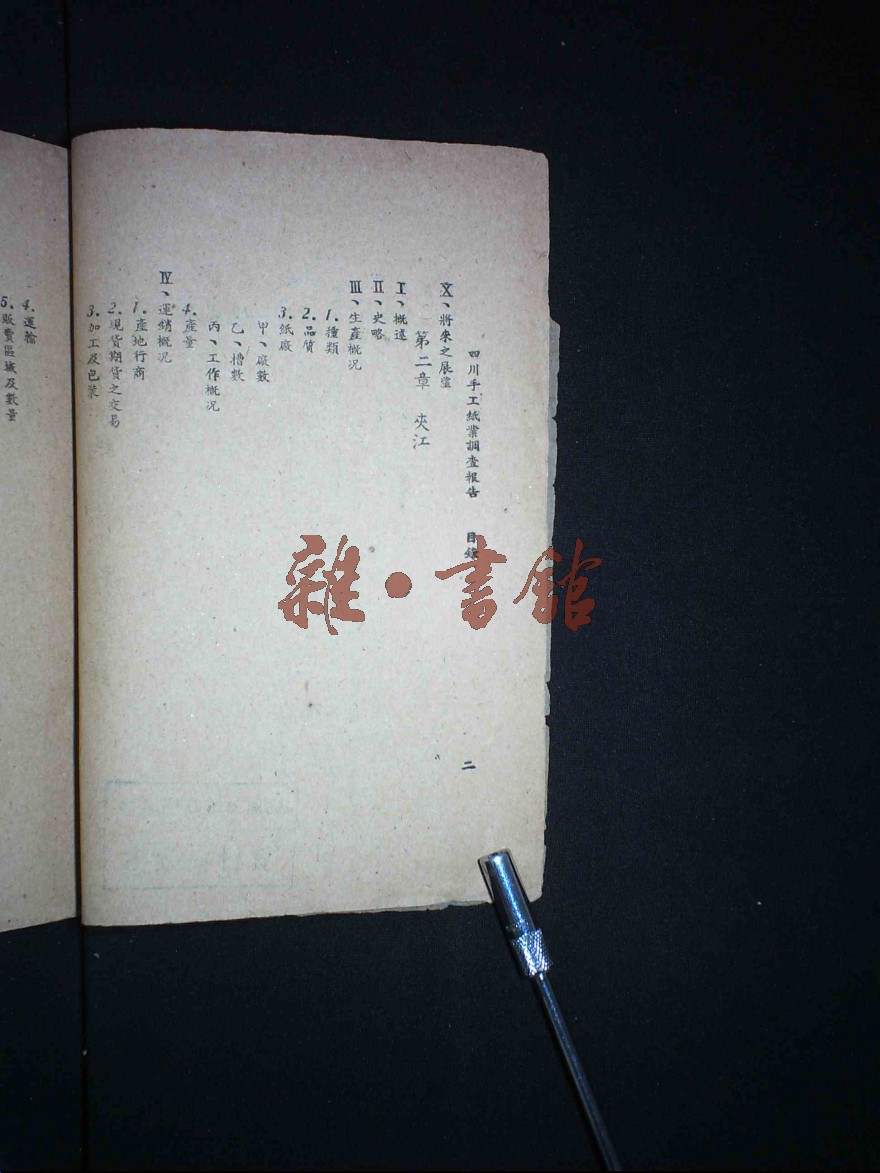 四川手工紙業調查報告 目錄
二
X、將來之展望
第二章 夾江
I、概述
II、史略
III、生產概況
1.種類
2.品質
3.紙廠
甲、廠數
乙、槽數
丙、工作概況
4.產量
IV、運銷概況
1.產地行商
2.現貨期貨之交易
3.加工及包裝
4.運輸
5.販賣區域及數量
雜·書館